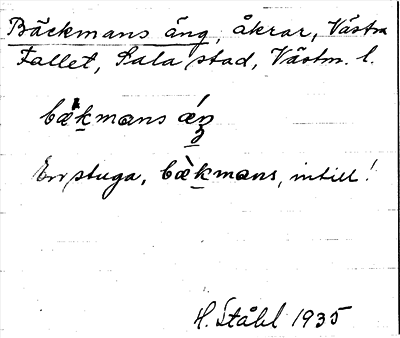 Bäckmans äng, åkrar, Västra
Fallet, Sala stad, Västm. l.
bæ̀ḵmans ǽŋ
En stuga, bæ̀ḵmans, intill!
H. Ståhl 1935